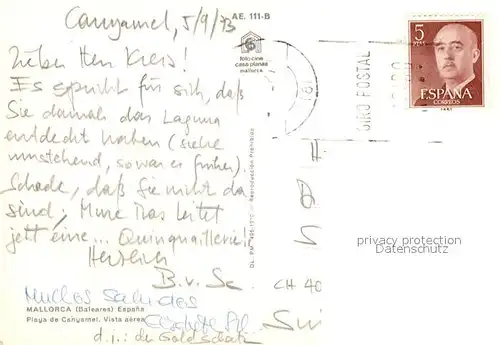 Canyamel, 5/9/73
Lieber Herr Kreis!
Es spricht für sich, daß
Sie damals das Laguna
entdeckt haben (siehe
umstehend, so war es früher).
Schade, daß Sie nicht da
sind; Mme Ras leitet
jetzt eine... Quinquaillerie!
Herzlich
B. v. Sc.
Muchos saludos
d.i.: der Goldschatz
MALLORCA (Baleares) España
Playa de Canyamel. Vista aérea
AE. 111-B
foto cine
casa planas
mallorca
Reproducción Prohibida
GIRO POSTAL
5
PTAS
ESPAÑA
CORREOS
CH 40
privacy protection
Datenschutz